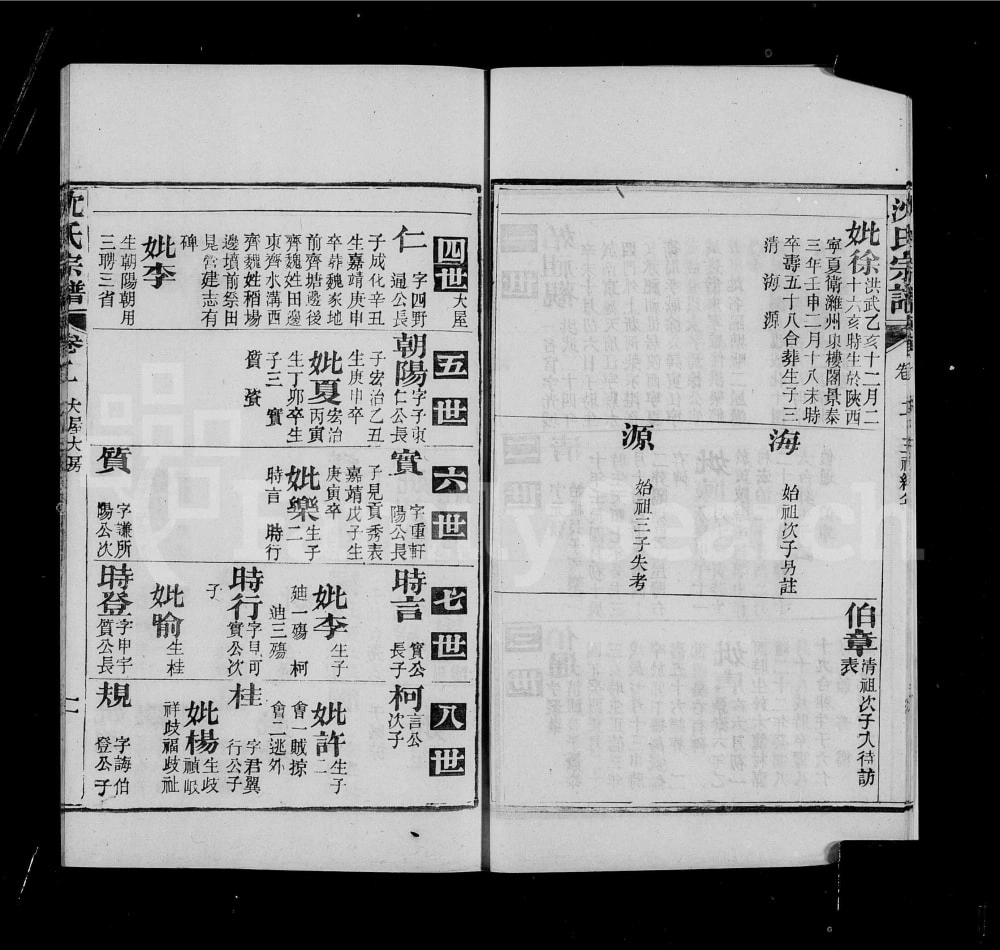 沈氏宗譜
卷
妣徐
洪武乙亥十二月二
十六亥時生於陝西
寧夏衛濰州東樓閣景泰
三年壬申二月十八未時
卒壽五十八合葬生子三
清 海 源
海
始祖次子另註
源
始祖三子失考
伯章
清祖次子入待訪
表
四世
大屋
仁
字四野
通公長
子成化辛丑
生嘉靖庚申
卒葬魏家地
前齊塘邊後
齊魏姓田邊
東齊水溝西
齊魏姓稻場
邊墳前祭田
晃營建志有
碑
妣李
生朝陽朝用
三聘三省
五世
朝陽
字子東
仁公長
子宏治乙丑
生庚申卒
妣夏
宏治
丙寅
生丁卯卒生
子三 實
質 賓
六世
實
字重軒
陽公長
子見貢秀表
嘉靖戊子生
庚寅卒
妣樂
生子
二
時言 時行
質
字謙所
陽公次
七世
時言
實公
長子
妣李
生子
柯
迪三殤
時行
字早可
實公次
子
妣喻
生桂
時登
字申宇
質公長
八世
柯
言公
次子
妣許
生子
二
會一賊掠
會二逃外
桂
字君翼
行公子
妣楊
生歧
禎歧
祥歧福歧祉
規
字誨伯
登公子
沈氏宗譜
卷十
大屋大房